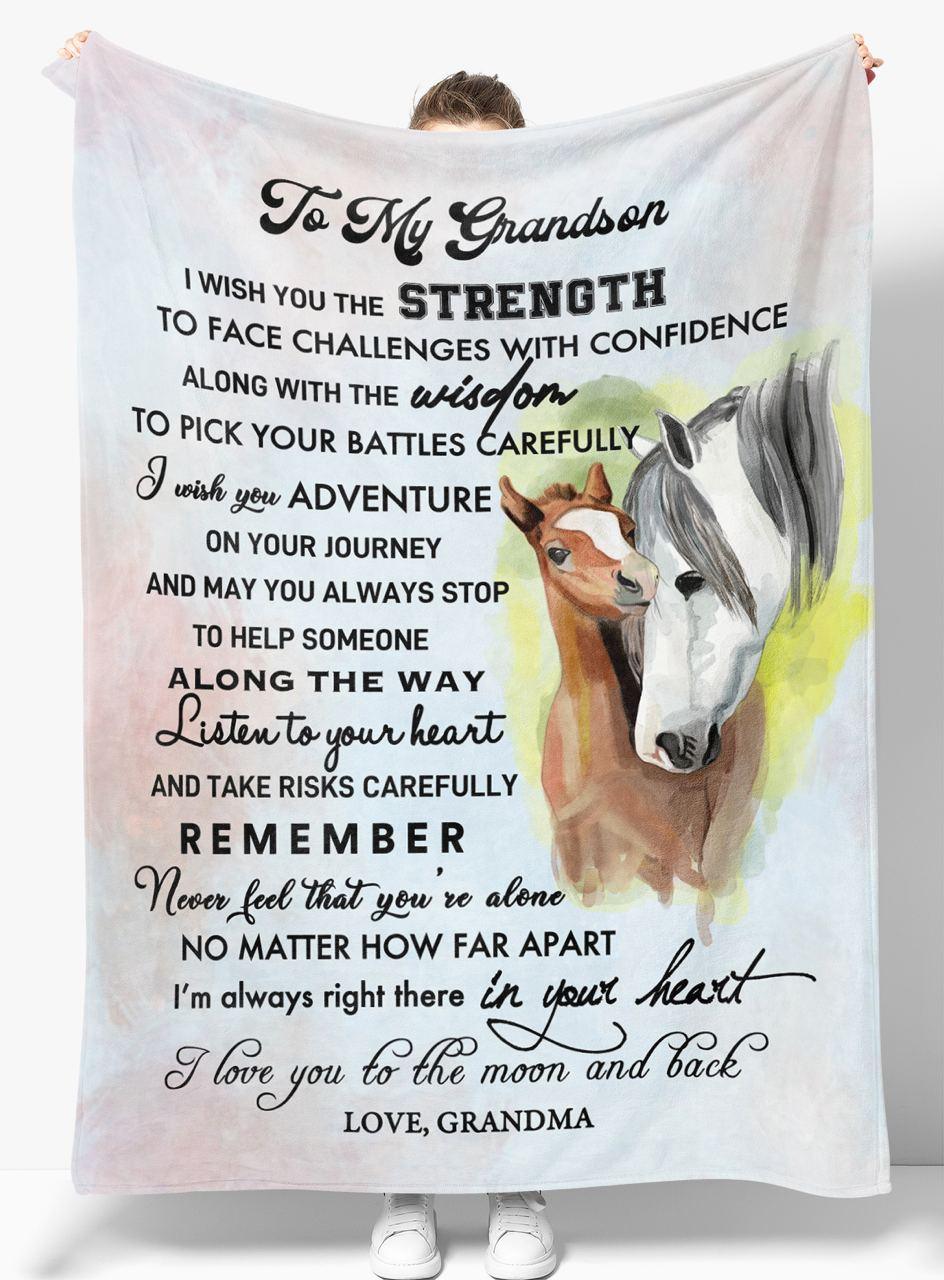 To My Grandson
I WISH YOU THE STRENGTH
TO FACE CHALLENGES WITH CONFIDENCE
ALONG WITH THE wisdom
TO PICK YOUR BATTLES CAREFULLY
I wish you ADVENTURE
ON YOUR JOURNEY
AND MAY YOU ALWAYS STOP
TO HELP SOMEONE
ALONG THE WAY
Listen to your heart
AND TAKE RISKS CAREFULLY
REMEMBER
Never feel that you're alone
NO MATTER HOW FAR APART
I'm always right there in your heart
I love you to the moon and back
LOVE, GRANDMA